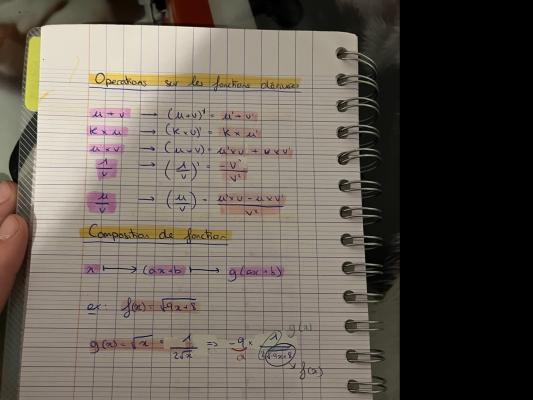 Operations sur les fonctions dérivées
u + v → (u+v)' = u' + v'
K × u → (K×v)' = K × u'
u × v → (u×v) = u'×v + u×v'
1/v → (1/v)' = -v'/v²
u/v → (u/v) = u'×v - u×v'/v²
Composition de fonction
x ⟼ (ax+b) ⟼ g(ax+b)
ex: f(x) = √-9x+8
g(x) = √x = 1/2√x => -9 × 1/2√-9x+8 g(x)
a f(x)